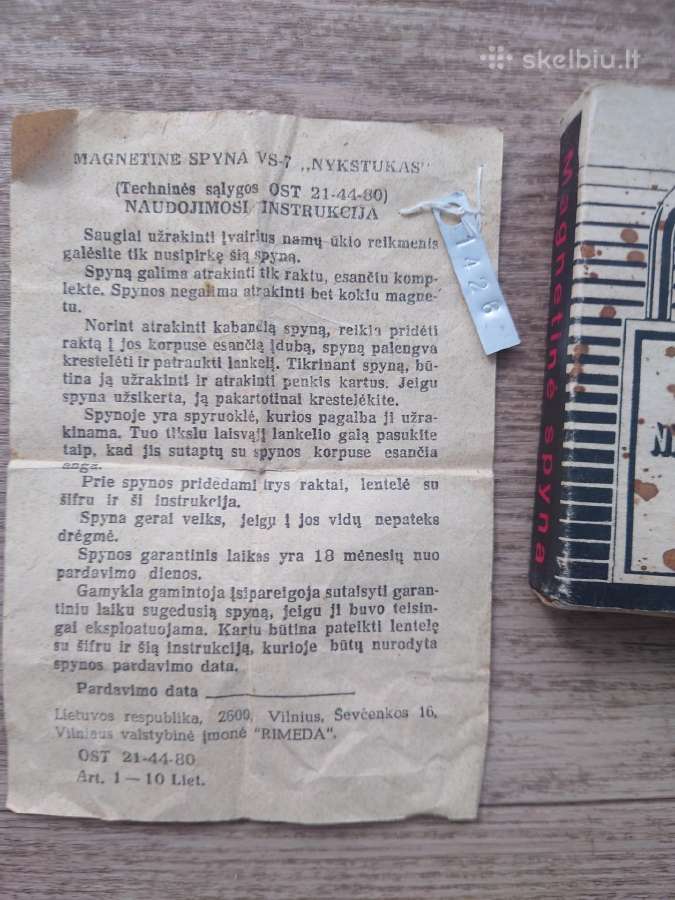 skelbiu.lt
MAGNETINĖ SPYNA VS-7 „NYKŠTUKAS"
(Techninės sąlygos OST 21-44-80)
NAUDOJIMOSI INSTRUKCIJA
Saugiai užrakinti įvairius namų ūkio reikmenis
galėsite tik nusipirkę šią spyną.
Spyną galima atrakinti tik raktu, esančiu komp-
lekte. Spynos negalima atrakinti bet kokiu magne-
tu.
Norint atrakinti kabančią spyną, reikia pridėti
raktą į jos korpuse esančią įdubą, spyną palengva
krestelėti ir patraukti lankelį. Tikrinant spyną, bū-
tina ją užrakinti ir atrakinti penkis kartus. Jeigu
spyna užsikerta, ją pakartotinai krestelėkite.
Spynoje yra spyruoklė, kurios pagalba ji užra-
kinama. Tuo tikslu laisvąjį lankelio galą pasukite
taip, kad jis sutaptų su spynos korpuse esančia
anga.
Prie spynos pridedami trys raktai, lentelė su
šifru ir ši instrukcija.
Spyna gerai veiks, jeigu į jos vidų nepateks
drėgmė.
Spynos garantinis laikas yra 18 mėnesių nuo
pardavimo dienos.
Gamykla gamintoja įsipareigoja sutaisyti garan-
tiniu laiku sugedusią spyną, jeigu ji buvo teisin-
gai eksploatuojama. Kartu būtina pateikti lentelę
su šifru ir šią instrukciją, kurioje būtų nurodyta
spynos pardavimo data.
Pardavimo data
Lietuvos respublika, 2600, Vilnius, Ševčenkos 16,
Vilniaus valstybinė įmonė "RIMEDA".
OST 21-44-80
Art. 1—10 Liet.
1426
Magnetinė spyna